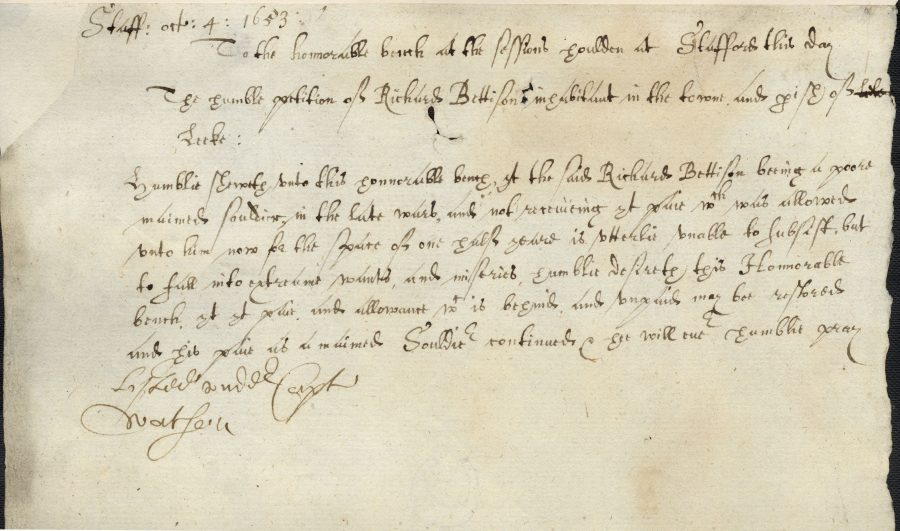 Staff: oct: 4: 1653:
To the honnorable bench at the sessions houlden at Stafford this day
The humble petition of Richard Bettison inhabitant in the towne and pish of
Leeke:
Humblie sheweth unto this honnorable bench, yt the said Richard Bettison beeing a poore
maimed souldier, in the late wars, and not receiueing yt paie wch was allowed
unto him now for the space of one halfe yeare is utterlie unable to subsist, but
to fall into extreame wants, and miseries, humblie desireth this Honnorable
bench, yt yt paie, and allowance wch is behind, and unpaid may bee restored
and his paie as a maimed Souldier continued & hee will euer humblie pray
Listed under Capt
Watson